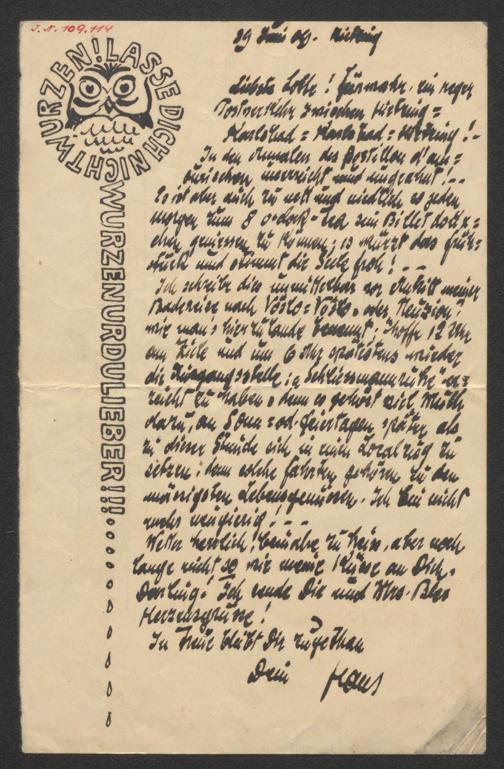 J.N. 109.114
LASSE DICH NICHT WURZEN!
WURZE NUR DU LIEBER!!!
29 Juni 09. Hietzing
Liebste Lotte! Fürwahr, ein reger
Postverkehr zwischen Hietzing =
Karlsbad = Karlsbad = Hietzing! -
In den Annalen des Postillon d'am =
unerreicht und ungeahnt! --
Es ist aber auch zu nett und niedlich so jeden
morgen zum 8 o'clock-tea sein Billet doux =
chen geniessen zu können; es würzt das Früh =
stück und stimmt die Seele froh! --
Ich schreibe dies unmittelbar vor Antritt meiner
nach Vöslo = Vöslo, oder
wie man's hierzulande benennt. Hoffe 12 Uhr
am Ziele und um 6 Uhr spätestens wieder
die Ausgangsstelle: er =
reicht zu haben, denn es gehört viel Muth
dazu, an Sonn = od. Feiertagen später als
zu dieser Stunde sich in einen Localzug zu
setzen; denn solche Fahrten gehören zu den
Lebensgenüssen. Ich bin nicht
mehr neugierig! --
Wetter herrlich! beinahe zu heiss, aber noch
lange nicht so wie meine Küsse an Dich,
Darling! Ich sende Dir und Mrs.
Herzensgrüsse!
In Treue bleibt Dir zugethan
Dein Hans